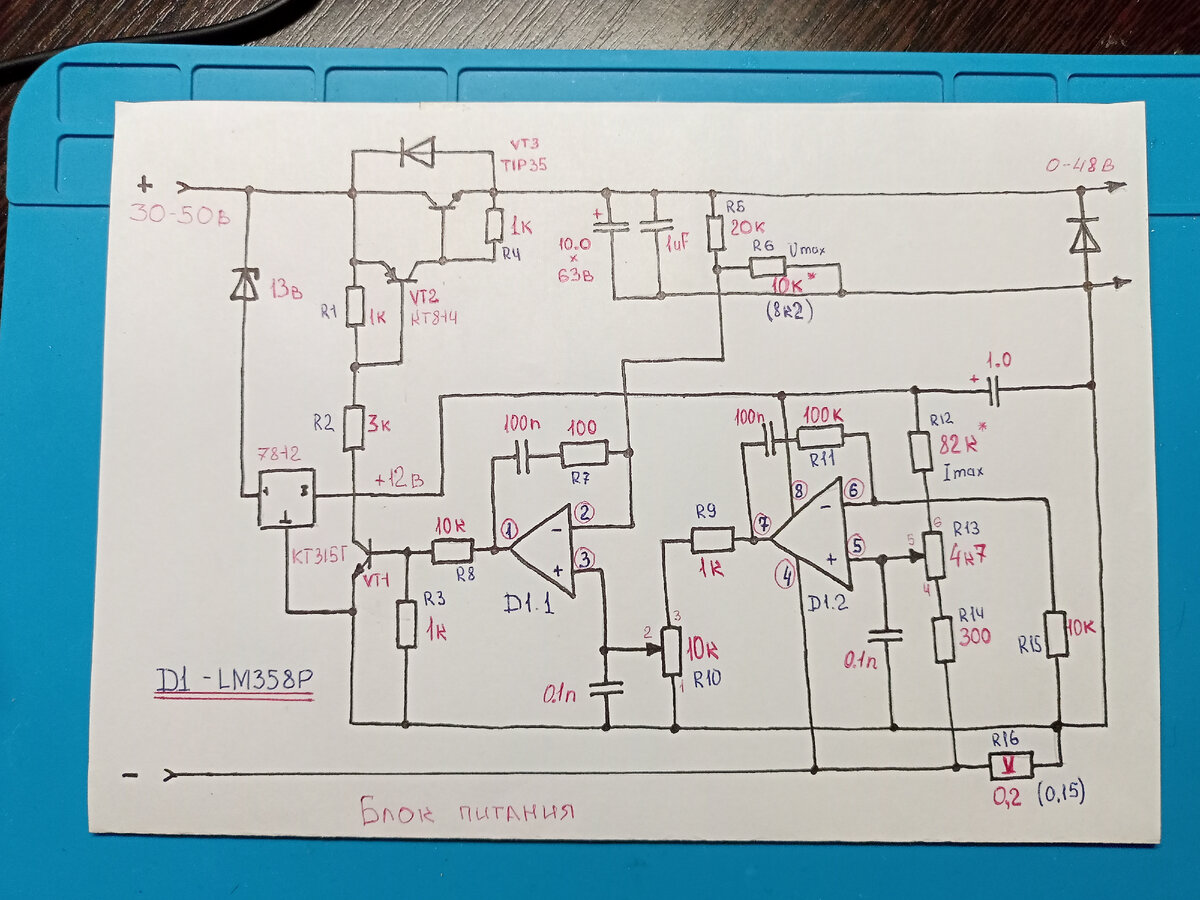 VT3
TIP35
0-48В
+
30-50В
1к
R4
+
10.0
×
63В
1uF
R5
20к
R6
Umax
10к*
(8к2)
13В
R1
1к
VT2
КТ814
1.0
+
R2
3к
100n
100
R7
100n
100к
R11
R12
82к*
Imax
7812
+12В
8
6
1
2
10к
R8
R9
1к
7
-
-
5
6
5
R13
4к7
4
КТ315Г
VT1
3
+
D1.1
4
+
D1.2
R3
1к
3
2
10к
R10
1
R14
300
R15
10к
D1 -LM358P
0.1n
0.1n
R16
-
0,2 (0,15)
Блок питания